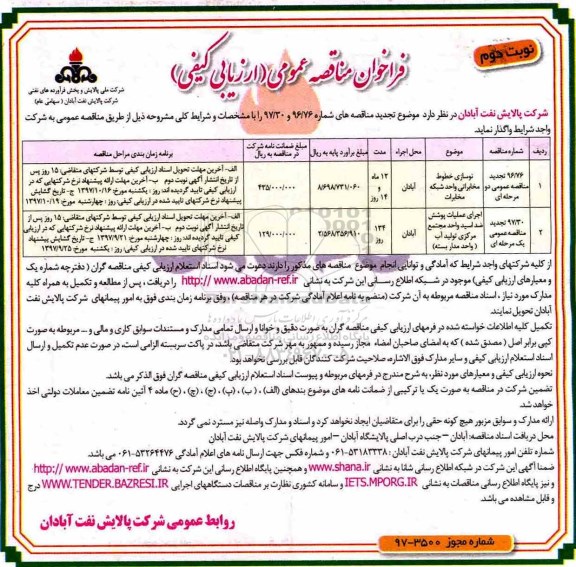 نوبت دوم
فراخوان مناقصه عمومی (ارزیابی کیفی)
شرکت ملی پالایش و پخش فرآورده های نفتی
شرکت پالایش نفت آبادان ( سهامی عام)
شرکت پالایش نفت آبادان در نظر دارد موضوع تجدید مناقصه های شماره ۹۶/۷۶ و ۹۷/۳۰ را با مشخصات و شرایط کلی مشروحه ذیل از طریق مناقصه عمومی به شرکت
واجد شرایط واگذار نماید.
ردیف شماره مناقصه موضوع محل اجراء مدت مبلغ برآورد پایه به ریال مبلغ ضمانت نامه شرکت در مناقصه به ریال برنامه زمان بندی مراحل مناقصه
۱ ۹۶/۷۶ تجدید مناقصه عمومی دو مرحله ای نوسازی خطوط مخابراتی واحد شبکه مخابرات آبادان ۱۲ ماه و ۱۴ روز ۸/۶۹۸/۷۳۱/۰۶۰ ۴۳۵/۰۰۰/۰۰۰
الف- آخرین مهلت تحویل اسناد ارزیابی کیفی توسط شرکتهای متقاضی: ۱۵ روز پس
از تاریخ انتشار آگهی نوبت دوم ب- آخرین مهلت ارائه پیشنهاد نرخ شرکتهایی که در
ارزیابی کیفی تایید گردیده اند: روز : یکشنبه مورخ ۱۳۹۷/۱۰/۱۶ ج- تاریخ گشایش
پیشنهاد نرخ شرکتهای تایید شده در ارزیابی کیفی: روز: چهارشنبه مورخ: ۱۳۹۷/۱۰/۱۹
۲ ۹۷/۳۰ تجدید مناقصه عمومی یک مرحله ای اجرای عملیات پوشش ضد اسید واحد مجتمع مرکزی تولید آب ( واحد مدار بسته) آبادان ۱۳۴ روز ۲/۵۶۸/۳۵۶/۹۱۰ ۱۲۹/۰۰۰/۰۰۰
الف- آخرین مهلت تحویل اسناد ارزیابی کیفی توسط شرکتهای متقاضی: ۱۵ روز پس از
تاریخ انتشار آگهی نوبت دوم ب- آخرین مهلت ارائه پیشنهاد نرخ شرکتهایی که در ارزیابی
کیفی تایید گردیده اند: روز: چهارشنبه مورخ ۱۳۹۷/۹/۲۱ ج- تاریخ گشایش پیشنهاد
نرخ شرکتهای تایید شده در ارزیابی کیفی روز: یکشنبه مورخ ۱۳۹۷/۹/۲۵
از کلیه شرکتهای واجد شرایط که آمادگی و توانایی انجام موضوع مناقصه های مذکور را دارند دعوت می شود اسناد استعلام ارزیابی کیفی مناقصه گران ( دفترچه شماره یک
و معیارهای ارزیابی کیفی) موجود در شبکه اطلاع رسانی این شرکت به نشانی http://www.abadan-ref.ir را دریافت ، پس از مطالعه و تکمیل به همراه کلیه
مدارک مورد نیاز ، اسناد مناقصه مربوطه به آن شرکت (منضم به نامه اعلام آمادگی شرکت در هر مناقصه) ، وفق برنامه زمان بندی فوق به امور پیمانهای شرکت پالایش نفت
آبادان تحویل نمایند
تکمیل کلیه اطلاعات خواسته شده در فرمهای ارزیابی کیفی مناقصه گران به صورت دقیق و خوانا و ارسال تمامی مدارک و مستندات سوابق کاری و مالی و ... مربوطه به صورت
کپی برابر اصل ( مصدق شده ) که به امضای صاحبان امضاء مجاز رسیده و ممهور به مهر شرکت متقاضی باشد، در پاکت سربسته الزامی است، در صورت عدم تکمیل و ارسال
اسناد استعلام ارزیابی کیفی و سایر مدارک فوق الاشاره، صلاحیت شرکت کنندگان قابل بررسی نخواهد بود
نحوه ارزیابی کیفی و معیارهای مورد نظر، به شرح مندرج در فرمهای مربوطه و پیوست اسناد استعلام ارزیابی کیفی مناقصه گران فوق الذکر می باشد.
تضمین شرکت در مناقصه به صورت یک یا ترکیبی از ضمانت نامه های موضوع بندهای (الف) ، (ب) ، (پ) ، (ج) ، (چ) ، (ح) ماده ۴ آئین نامه تضمین معاملات دولتی اخذ
خواهد شد.
ارائه مدارک و سوابق مزبور هیچ گونه حقی را برای متقاضیان ایجاد نخواهد کرد و اسناد و مدارک واصله نیز مسترد نمی گردد.
محل دریافت اسناد مناقصه: آبادان – جنب درب اصلی پالایشگاه آبادان – امور پیمانهای شرکت پالایش نفت آبادان
شماره تلفن امور پیمانهای شرکت پالایش نفت آبادان : ۵۳۱۸۳۳۳۸-۰۶۱ و شماره فکس جهت ارسال نامه های اعلام آمادگی ۵۳۲۶۴۴۷۶-۰۶۱ می باشد.
ضمنا آگهی این شرکت در شبکه اطلاع رسانی شانا به نشانی www.shana.ir و همچنین پایگاه اطلاع رسانی این شرکت به نشانی http://www.abadan-ref.ir
و نیز پایگاه اطلاع رسانی مناقصات به نشانی IETS.MPORG.IR و سامانه کشوری نظارت بر مناقصات دستگاههای اجرایی WWW.TENDER.BAZRESI.IR درج
و قابل مشاهده می باشد.
روابط عمومی شرکت پالایش نفت آبادان
شماره مجوز ۳۵۰۰-۹۷